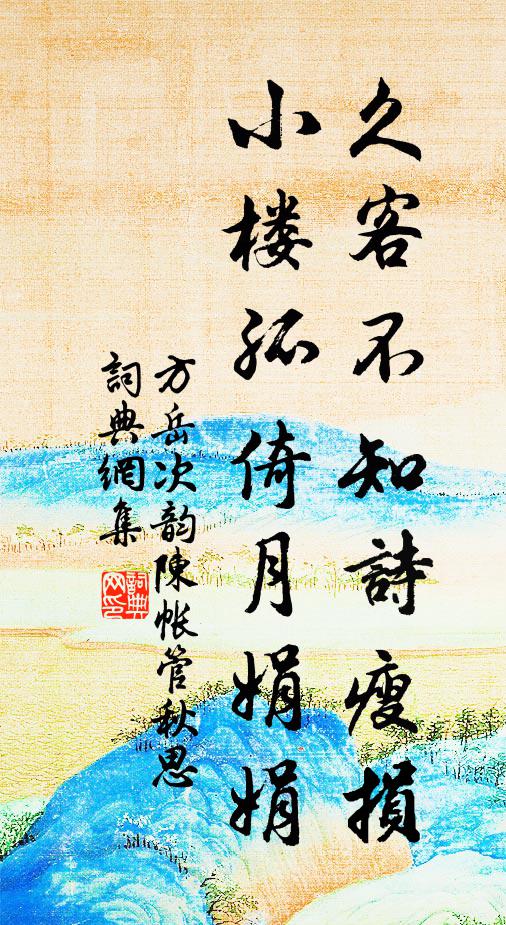 久客不知詩瘦損
小楼孤倚月娟娟
方岳次韵陳帐管秋思
詞典網集
詞典网印